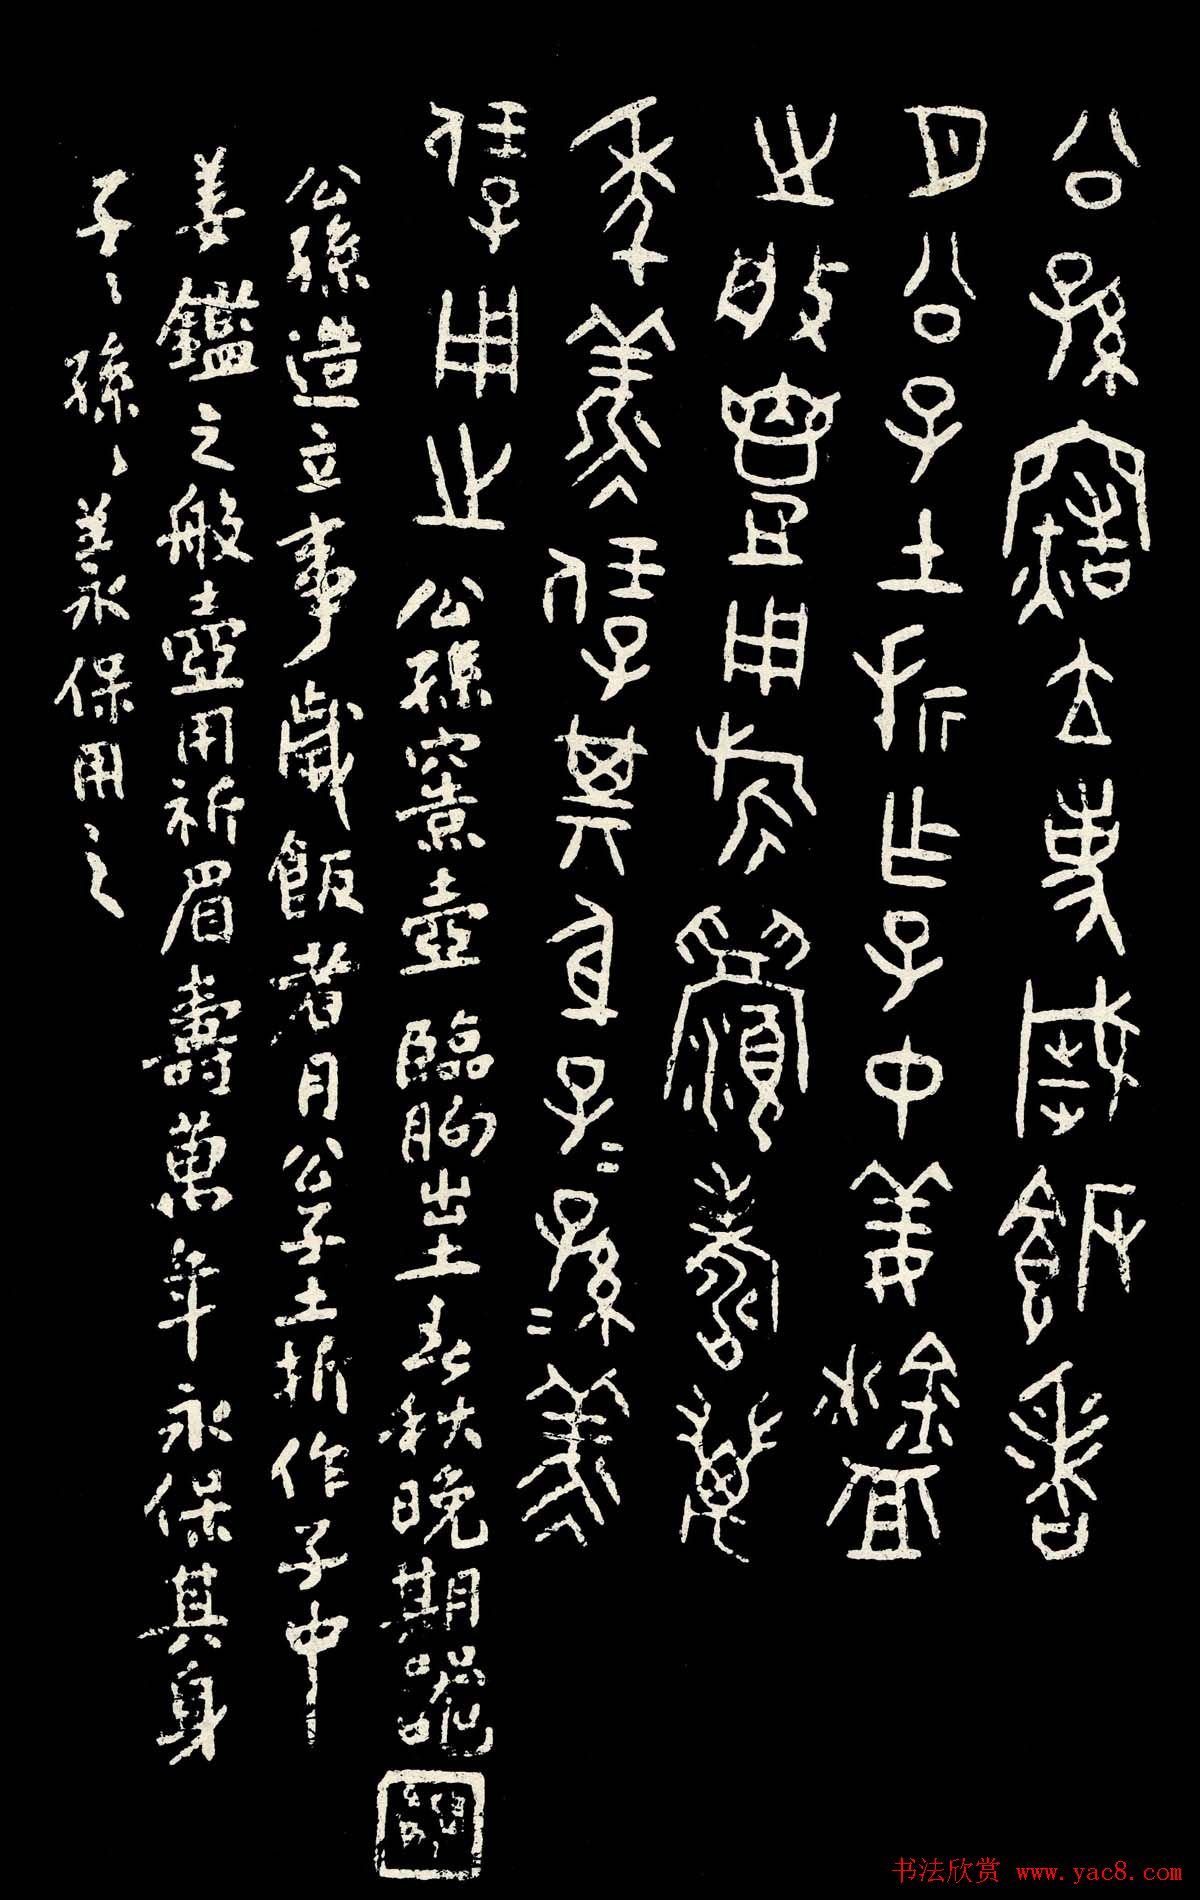 公孫立事歲飯者
月公子土折乍子中姜
之般壺用旂眉壽萬
年羕保其身子=孫=羕
保用之 公孫壺 臨朐出土春秋晚期器
公孫造立事歲飯者月公子土折作子中
姜鑑之般壺用祈眉壽萬年永保其身
子〻孫〻羕保用之
书法欣赏 www.yac8.com